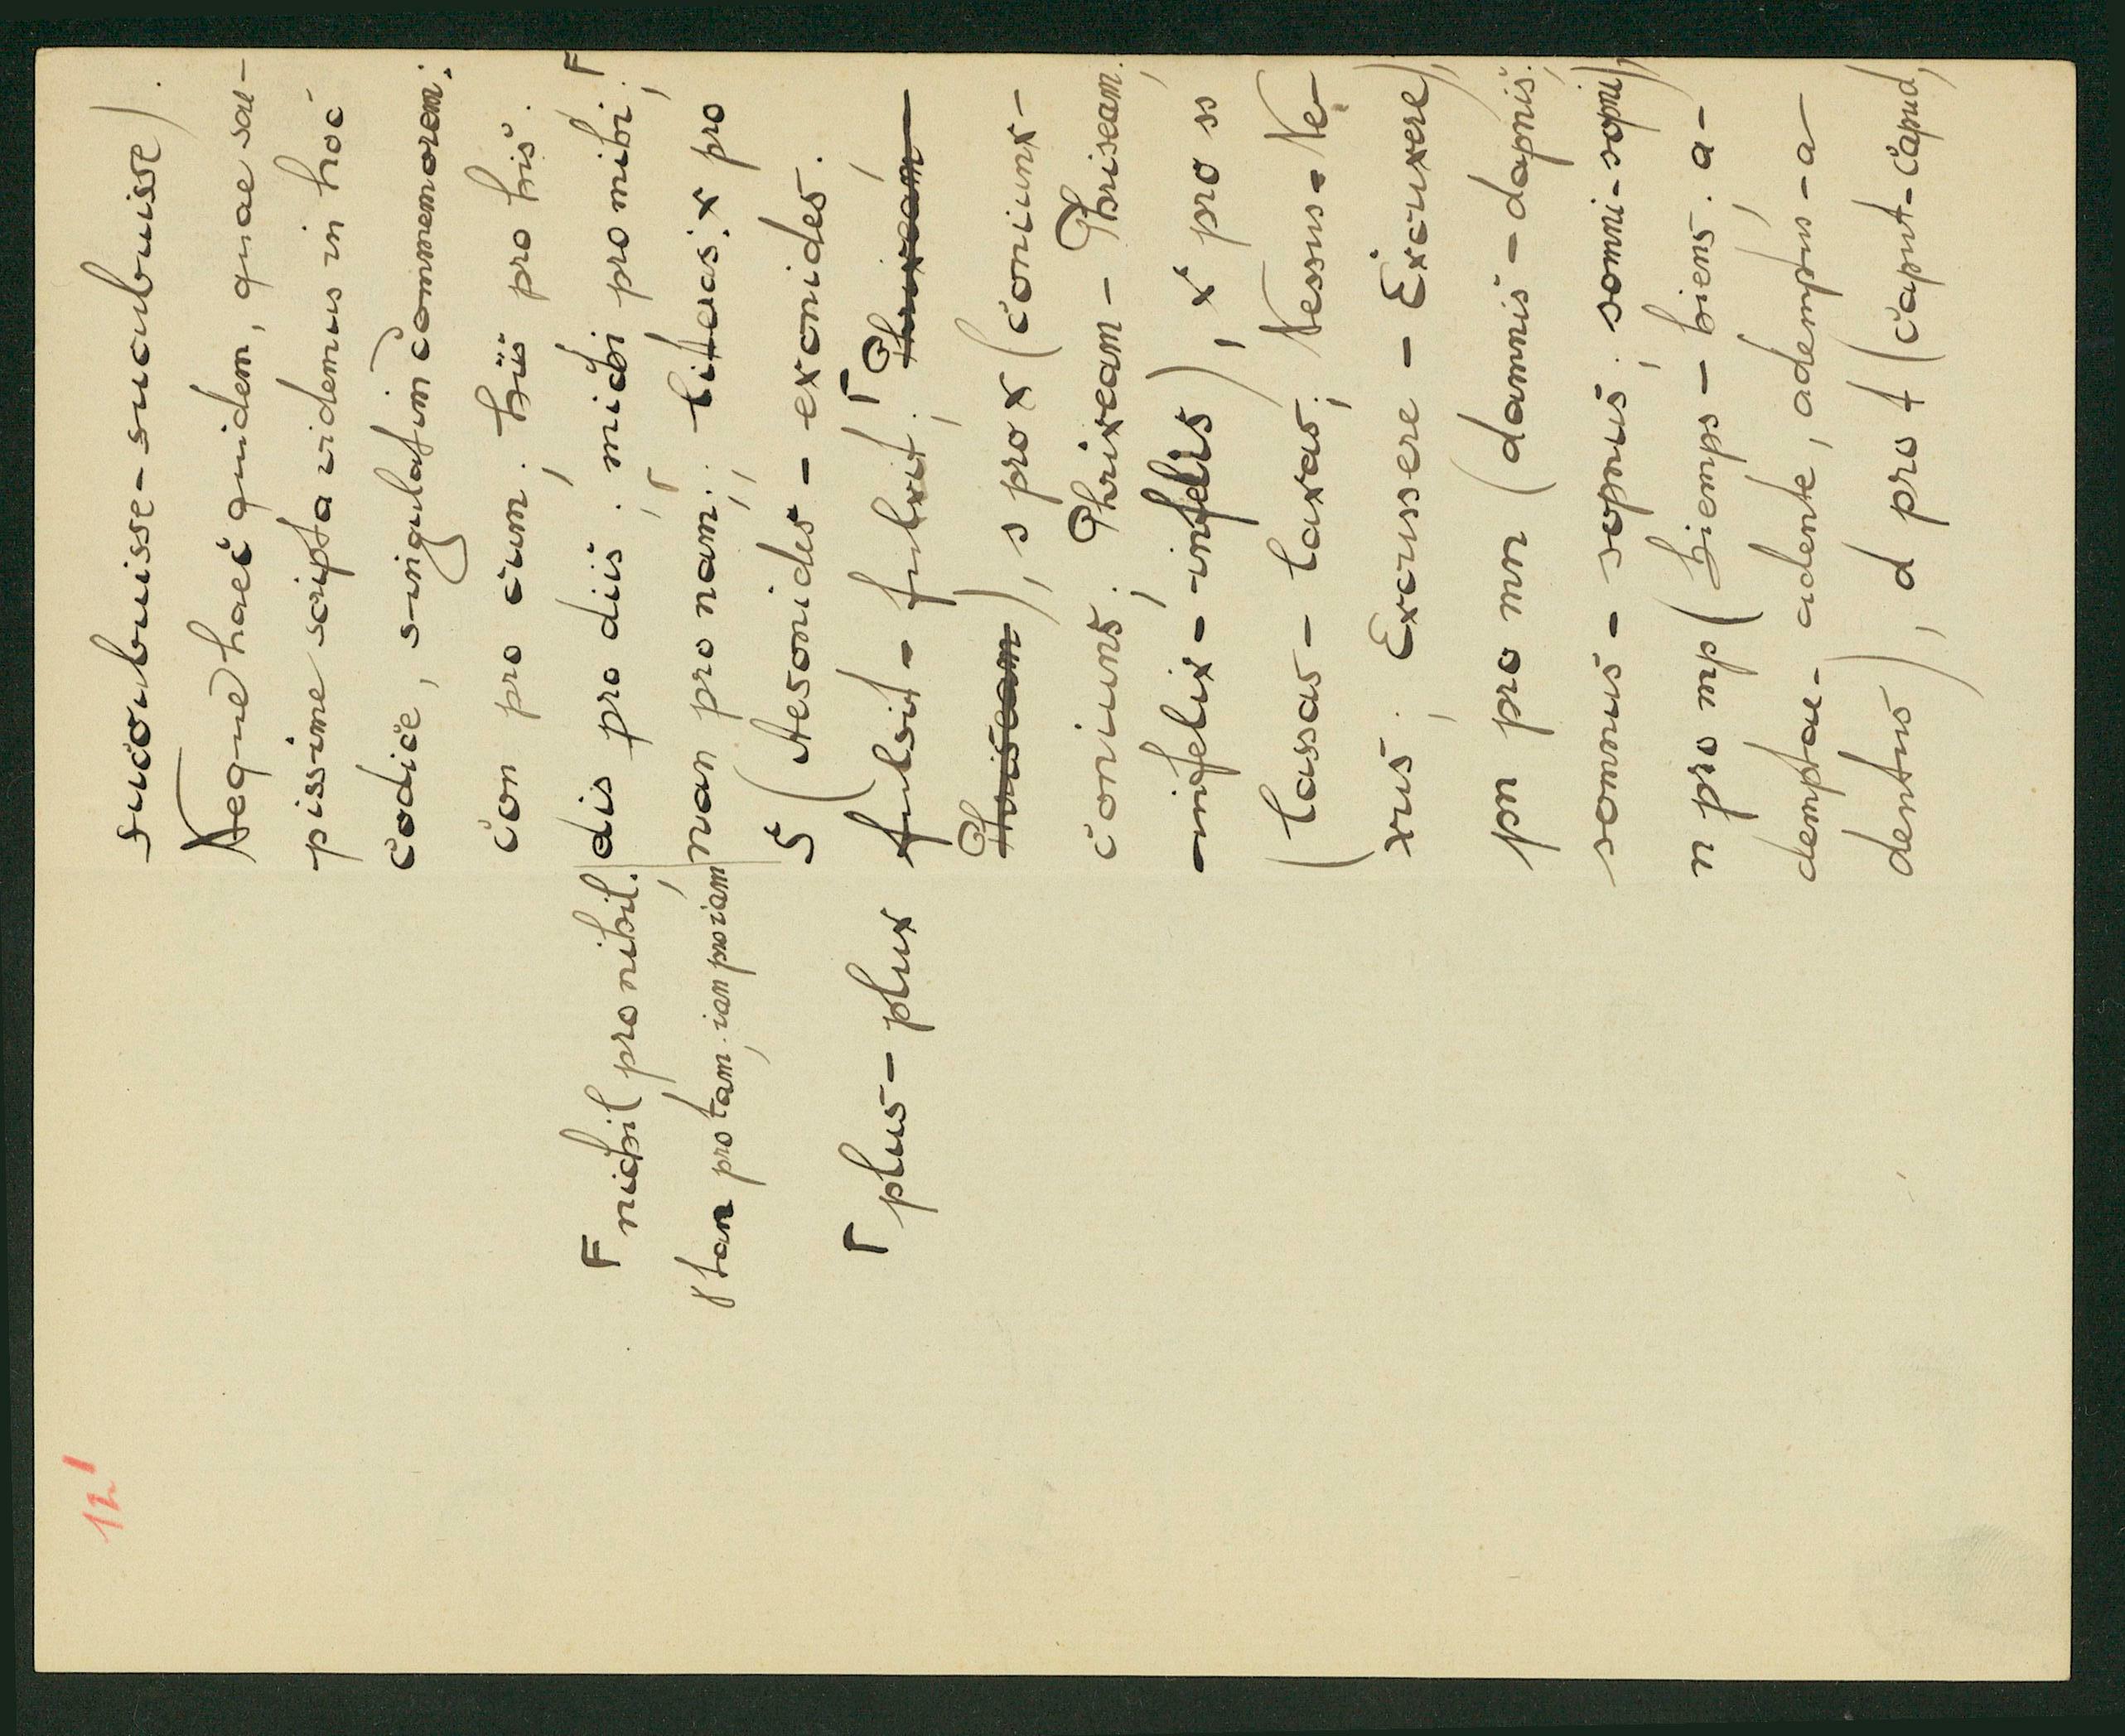 succubuisse - sucubuisse).
Neque haec quidem, quae sae-
pissime scripta videmus in hoc
codice, singulatim commemorem:
con pro cum; hiis pro his.
dis pro diis; michi pro mihi; F
nan pro nam; literas: x pro
s (Aesonides - exonides.
fulsit - fulxit; Γ Phrixeam -
Phriseam), s pro x (coniunx -
coniuns; Phrixeam - Phriseam;
- infelix - infelis), x pro ss
(lassas - laxas; Nessus - Ne-
xus; Excussere - Excuxere),
pn pro mn (damnis - dapnis;
somnus - sopnus; somni - sopni),
n pro mp (hiemps - hiens; a-
demptae - adente, ademptus - a-
dentus), d pro t (caput - capud,
F nichil pro nihil.
Γ tan pro tam; ian pro iam
Γ plus - plux
121